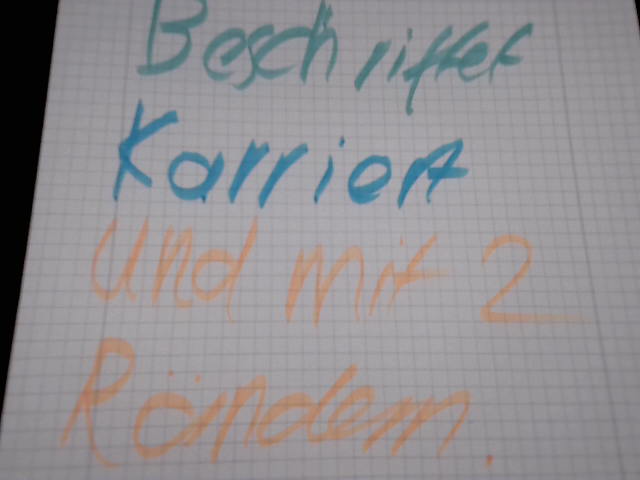 Beschriftet
Karriert
und mit 2
Rändern.